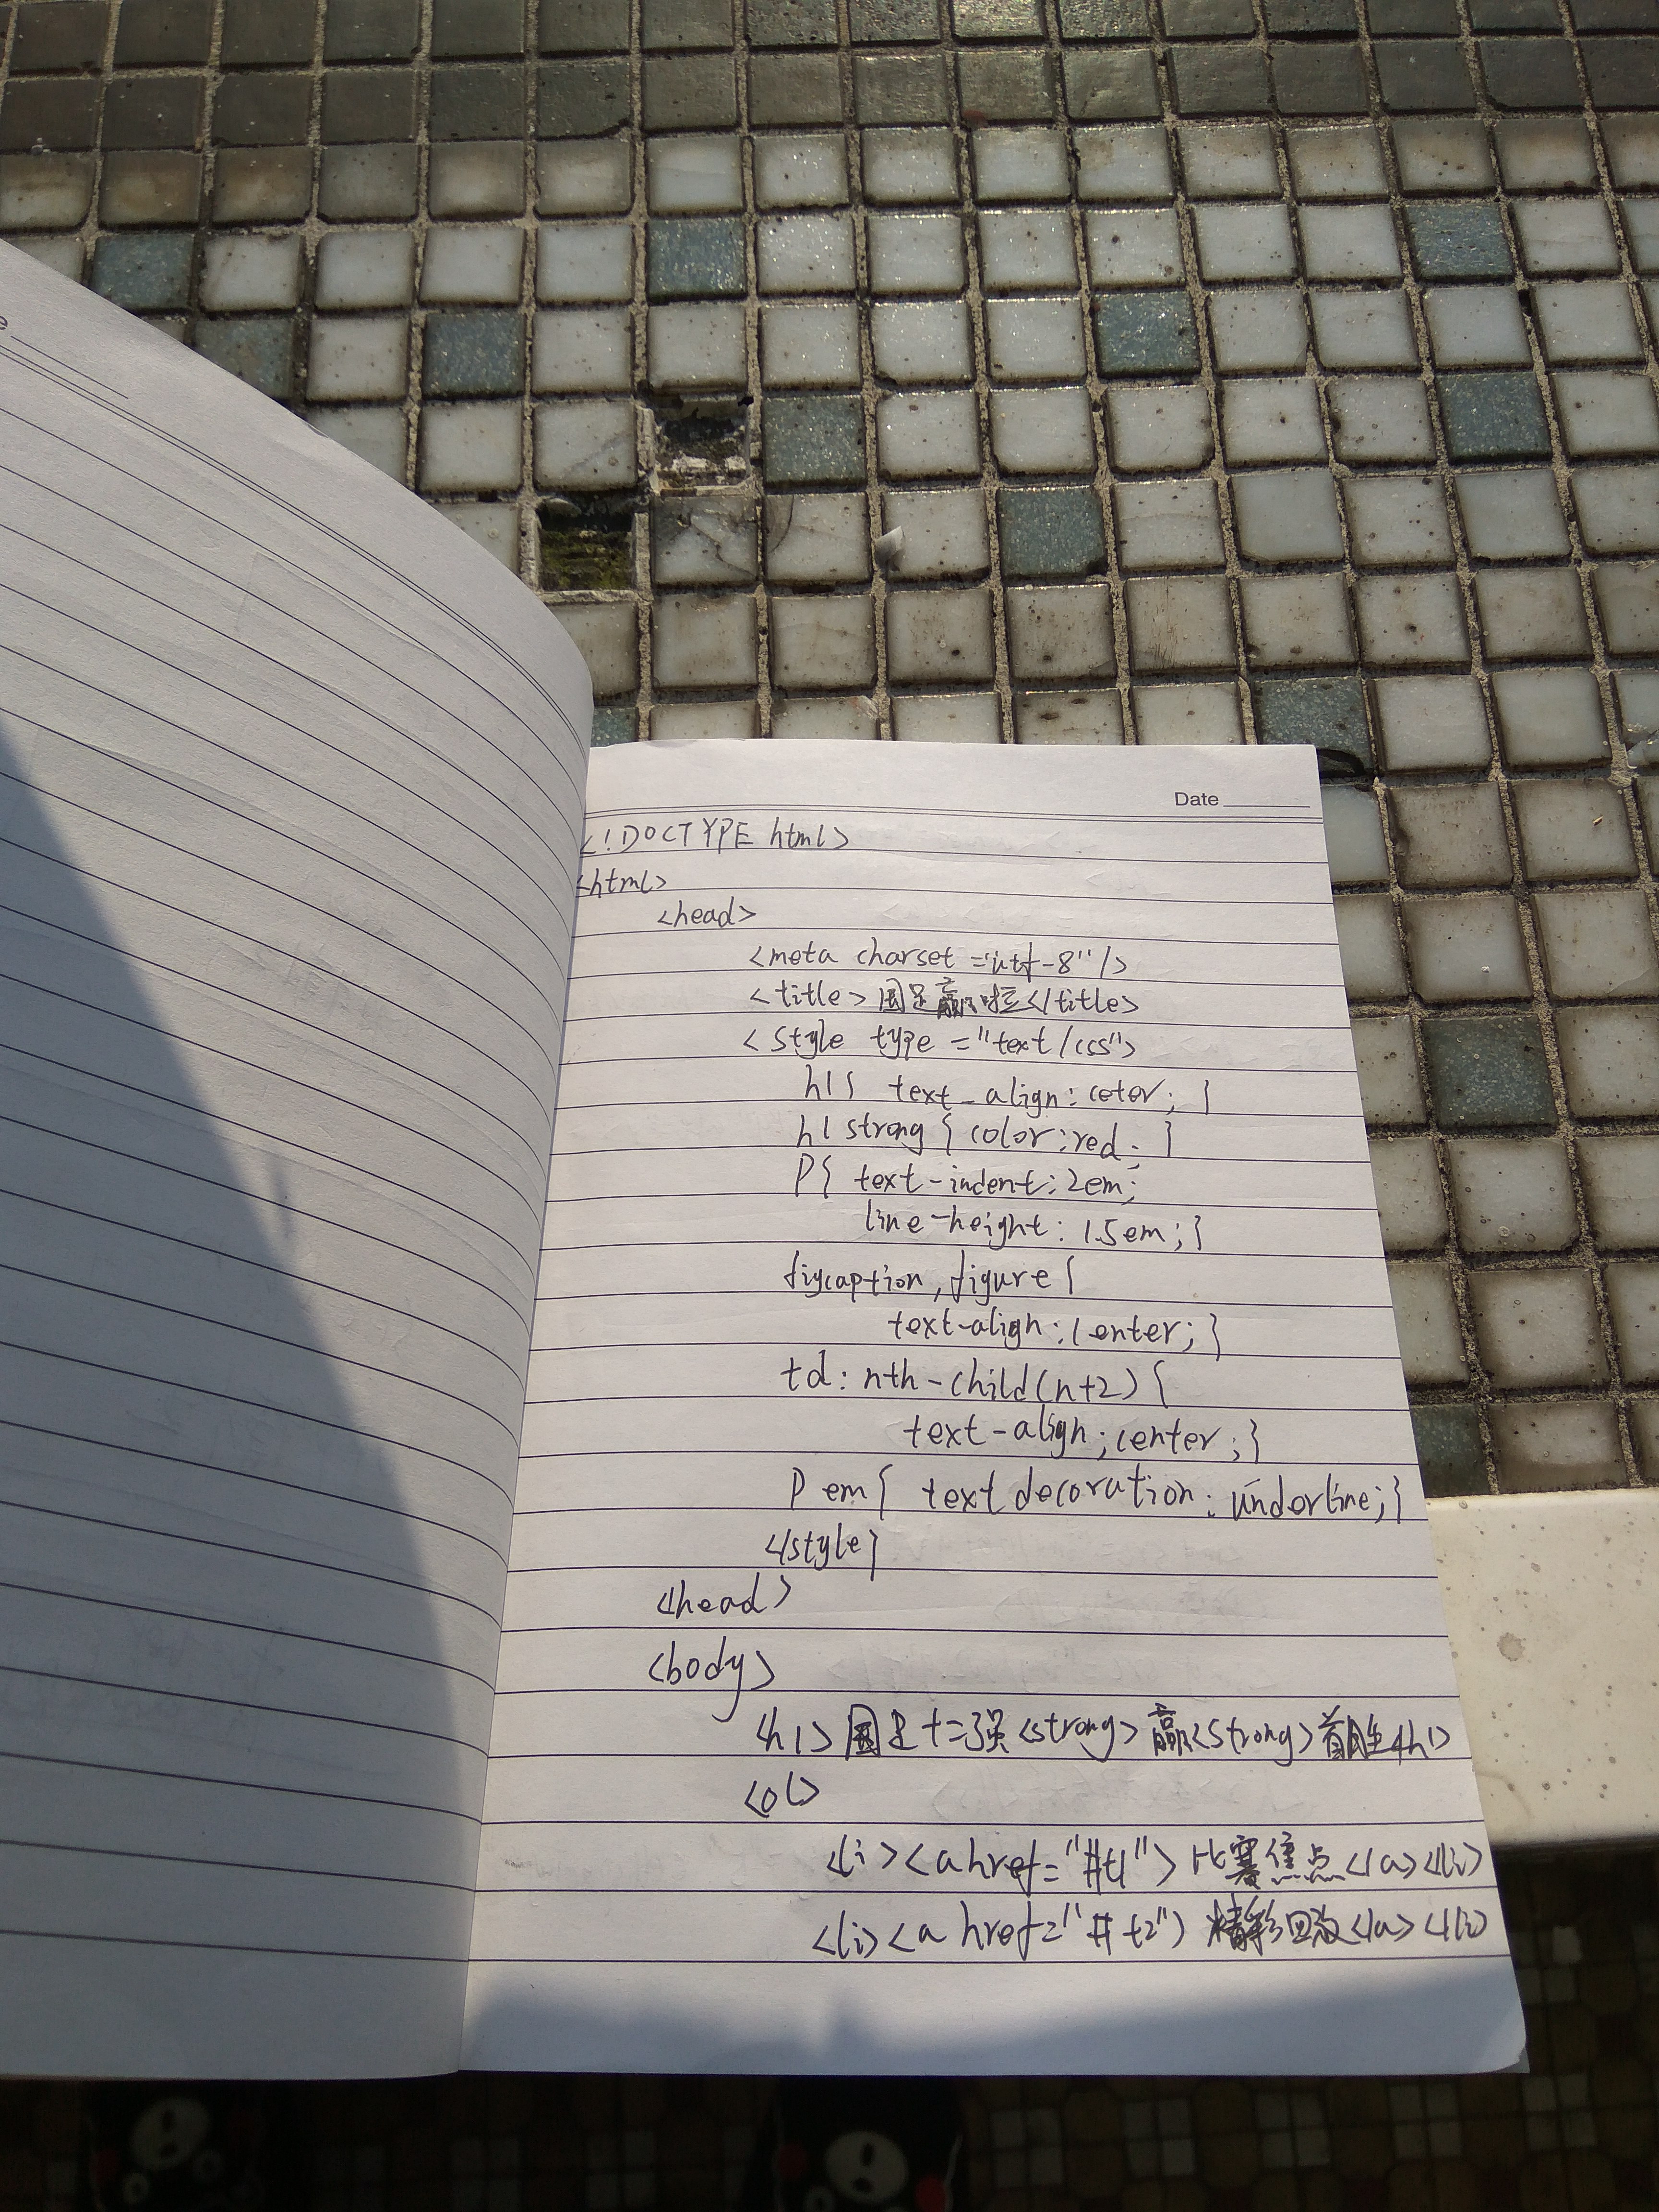 e
Date
<!DOCTYPE html>
<html>
<head>
<meta charset="utf-8"/>
<title>国足赢啦</title>
<style type="text/css">
h1{ text-align:ceter; }
h1 strong{ color:red; }
P{ text-indent:2em;
line-height:1.5em;}
figcaption,figure{
text-align:center;}
td:nth-child(n+2){
text-align;center;}
P em{ text decoration:underline;}
</style}
</head>
<body>
<h1>国足十二强<strong>赢<strong>首胜</h1>
<ol>
<li><a href="#t1">比赛焦点</a></li>
<li><a href="#t2")精彩回放</a></li>